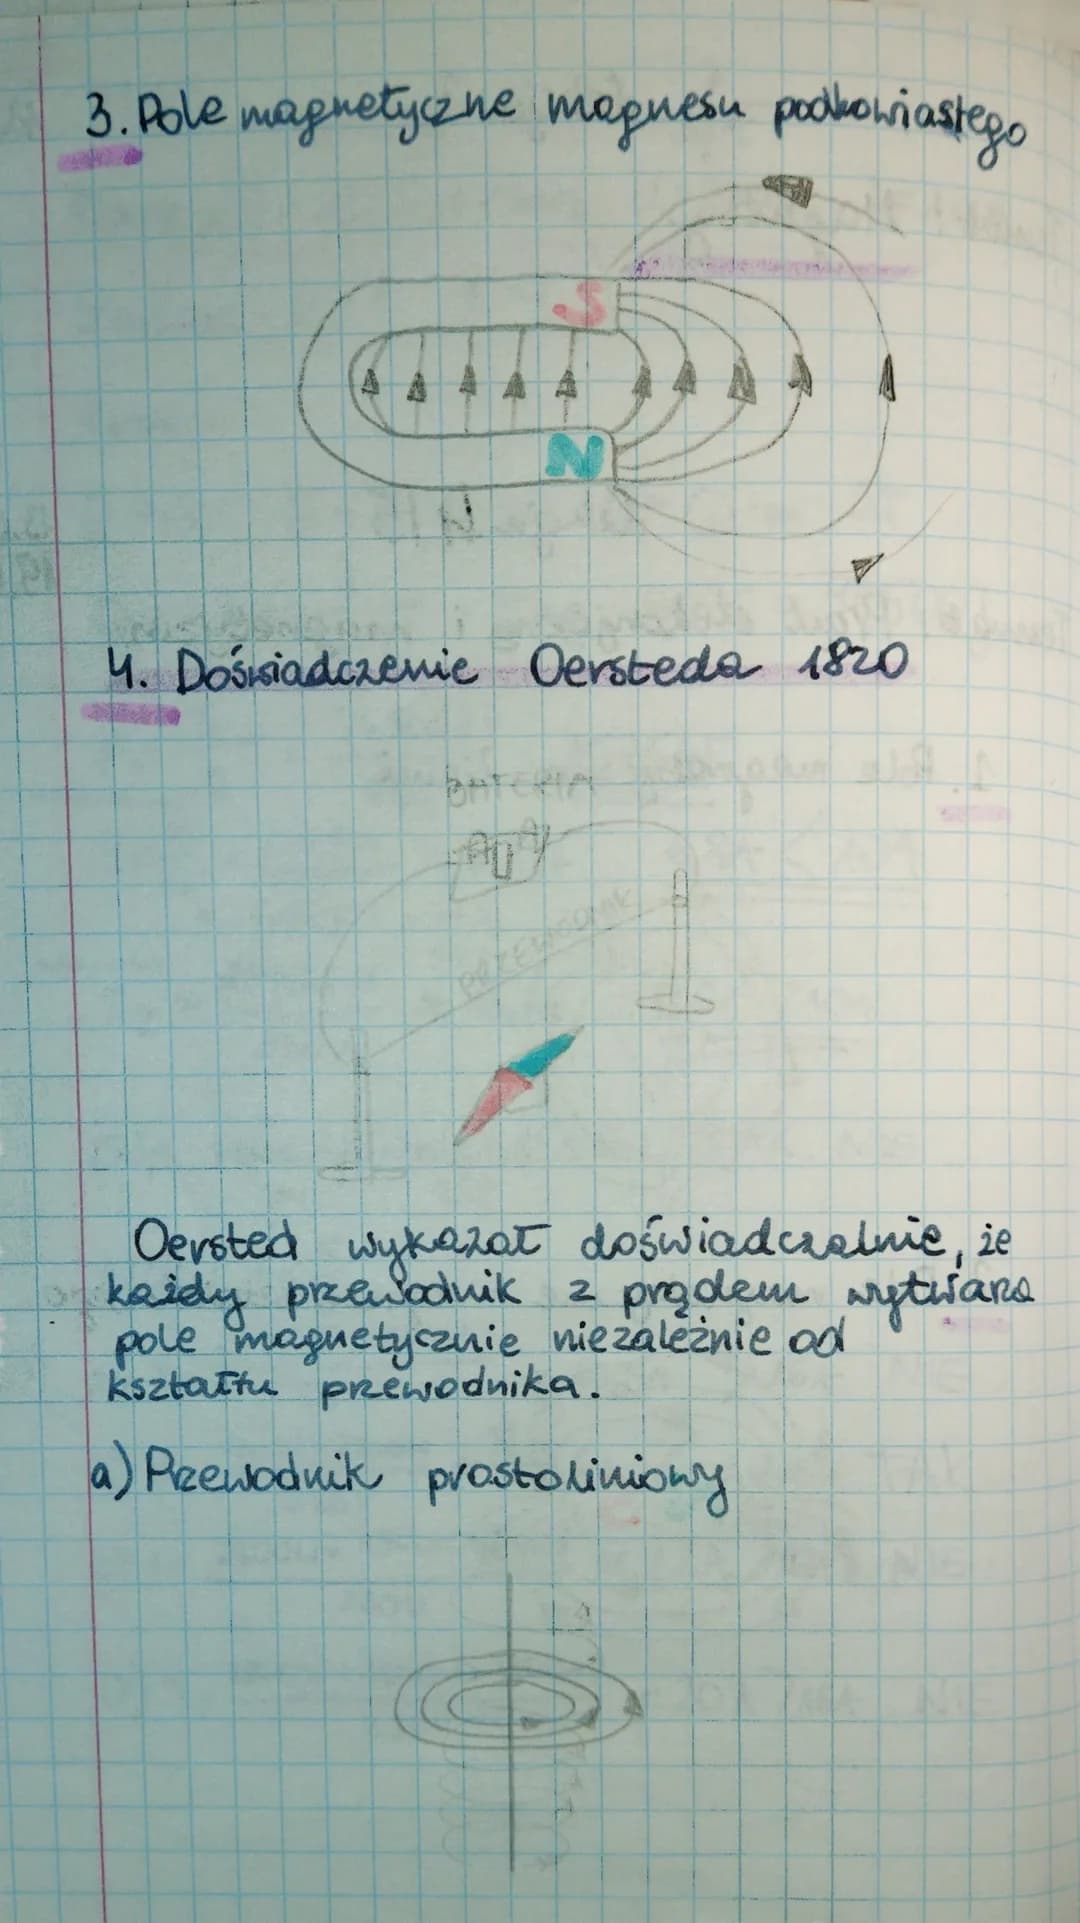 3. Pole magnetyczne magnesu podkowiastego
S
N
4. Doświadczenie Oersteda 1820
BATERIA
PRZEWODNIK
Oersted wykazał doświadczalnie, że
każdy przewodnik z prądem wytwarza
pole magnetycznie niezależnie od
kształtu przewodnika.
a) Przewodnik prostoliniowy